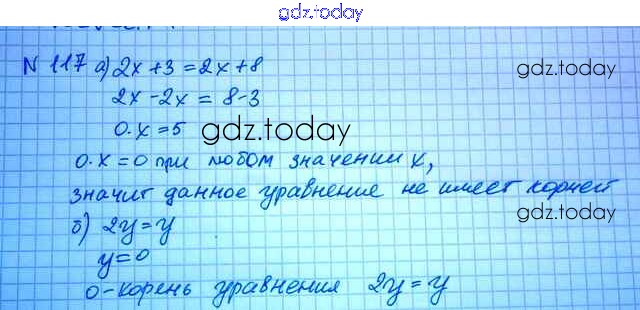 gdz.today
№ 117 а) 2x + 3 = 2x + 8
gdz.today
2x - 2x = 8 - 3
0·x = 5 gdz.today
0·x = 0 при любом значении x,
gdz.today
значит данное уравнение не имеет корней
gdz.today
б) 2y = y
y = 0
0 - корень уравнения 2y = y